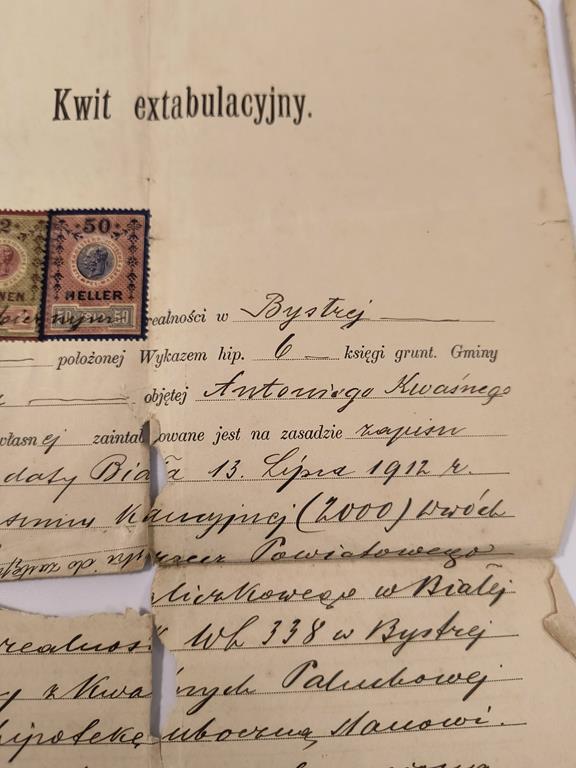 Kwit extabulacyjny.
2 50
NEN HELLER
50 50
realności w Bystrej
położonej Wykazem hip. 6 księgi grunt. Gminy
objętej Antoniego Kwaśnego
własnej zaintabulowane jest na zasadzie zapisu
daty Biała 13. Lipca 1912 r.
kaucyjnej (2000) dwóch
przez Powiatowego
liczkowego w Białej
realność Wh 338 w Bystrej
z Kwaśnych Paluchowej
hipotekę uboczną stanowi.